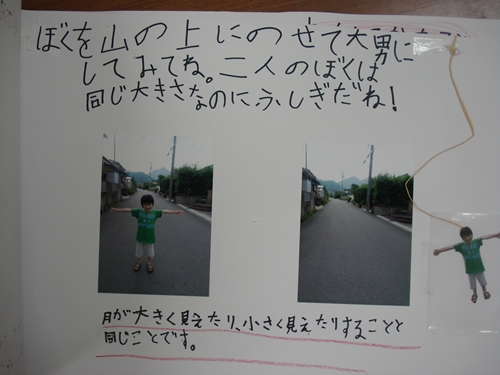 ぼくを山の上にのせて大男に
してみてね。二人のぼくは
同じ大きさなのにふしぎだね!
月が大きく見えたり、小さく見えたりすることと
同じことです。